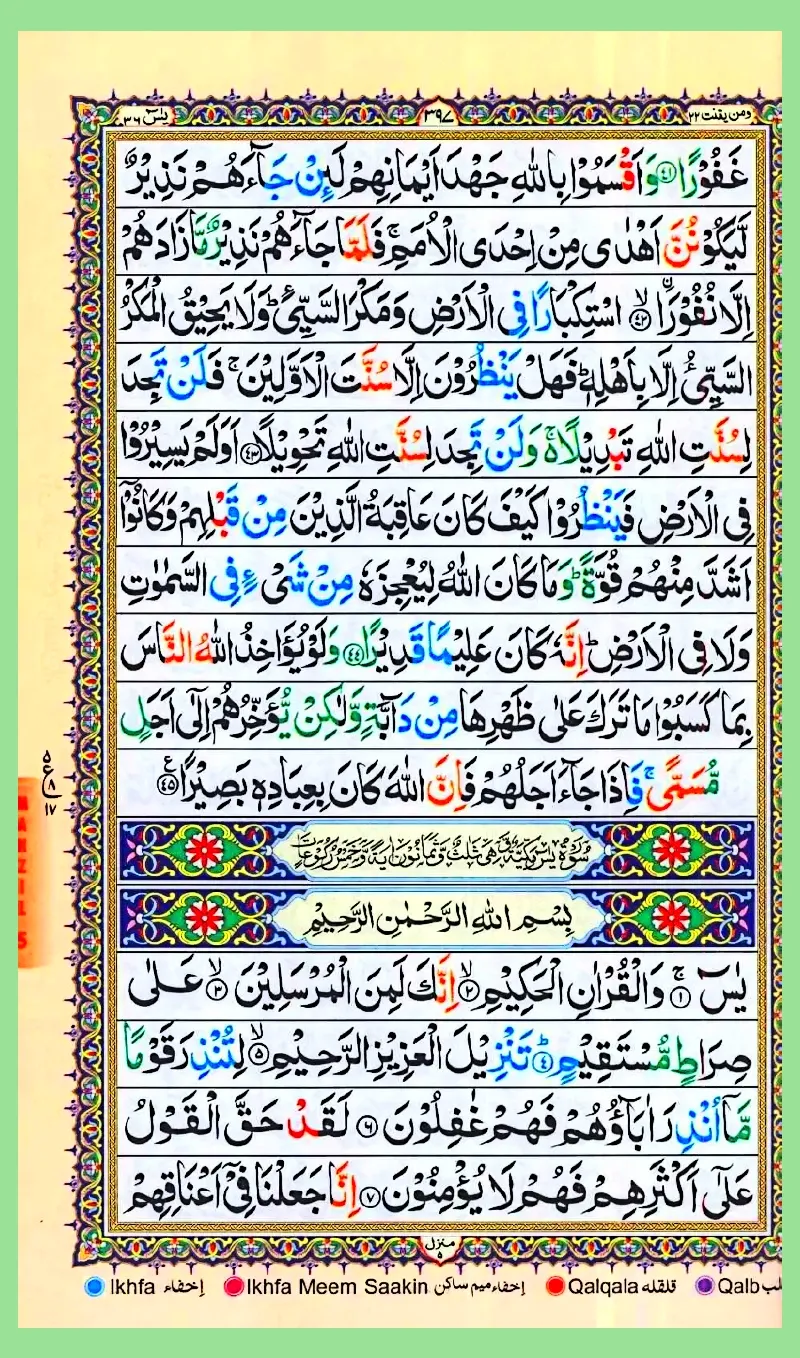 ومن یقنت ٢٢
٣٩٧
یٰسٓ ٣٦
غَفُوْرًا ﴿٤١﴾ وَاَقْسَمُوْا بِاللّٰهِ جَهْدَ اَيْمَانِهِمْ لَئِنْ جَآءَهُمْ نَذِيْرٌ
لَّيَكُوْنُنَّ اَهْدٰى مِنْ اِحْدَى الْاُمَمِ ۚ فَلَمَّا جَآءَهُمْ نَذِيْرٌ مَّا زَادَهُمْ
اِلَّا نُفُوْرًا ۙ﴿٤٢﴾ اسْتِكْبَارًا فِى الْاَرْضِ وَمَكْرَ السَّيِّئِ ؕ وَلَا يَحِيْقُ الْمَكْرُ
السَّيِّئُ اِلَّا بِاَهْلِهٖ ؕ فَهَلْ يَنْظُرُوْنَ اِلَّا سُنَّتَ الْاَوَّلِيْنَ ۚ فَلَنْ تَجِدَ
لِسُنَّتِ اللّٰهِ تَبْدِيْلًا ۚ۬ وَلَنْ تَجِدَ لِسُنَّتِ اللّٰهِ تَحْوِيْلًا ﴿٤٣﴾ اَوَلَمْ يَسِيْرُوْا
فِى الْاَرْضِ فَيَنْظُرُوْا كَيْفَ كَانَ عَاقِبَةُ الَّذِيْنَ مِنْ قَبْلِهِمْ وَكَانُوْۤا
اَشَدَّ مِنْهُمْ قُوَّةً ؕ وَمَا كَانَ اللّٰهُ لِيُعْجِزَهٗ مِنْ شَىْءٍ فِى السَّمٰوٰتِ
وَلَا فِى الْاَرْضِ ؕ اِنَّهٗ كَانَ عَلِيْمًا قَدِيْرًا ﴿٤٤﴾ وَلَوْ يُؤَاخِذُ اللّٰهُ النَّاسَ
بِمَا كَسَبُوْا مَا تَرَكَ عَلٰى ظَهْرِهَا مِنْ دَآبَّةٍ وَّلٰكِنْ يُّؤَخِّرُهُمْ اِلٰٓى اَجَلٍ
مُّسَمًّى ۚ فَاِذَا جَآءَ اَجَلُهُمْ فَاِنَّ اللّٰهَ كَانَ بِعِبَادِهٖ بَصِيْرًا ﴿٤٥﴾
٥
ع
٨
١٧
MANZIL 5
سُوْرَةُ يٰسٓ مَكِّيَّةٌ وَّهِىَ ثَلٰثٌ وَّثَمَانُوْنَ اٰيَةً وَّخَمْسُ رُكُوْعَاتٍ
بِسْمِ اللّٰهِ الرَّحْمٰنِ الرَّحِيْمِ
يٰسٓ ۚ﴿١﴾ وَالْقُرْاٰنِ الْحَكِيْمِ ۙ﴿٢﴾ اِنَّكَ لَمِنَ الْمُرْسَلِيْنَ ۙ﴿٣﴾ عَلٰى
صِرَاطٍ مُّسْتَقِيْمٍ ؕ﴿٤﴾ تَنْزِيْلَ الْعَزِيْزِ الرَّحِيْمِ ۙ﴿٥﴾ لِتُنْذِرَ قَوْمًا
مَّآ اُنْذِرَ اٰبَآؤُهُمْ فَهُمْ غٰفِلُوْنَ ﴿٦﴾ لَقَدْ حَقَّ الْقَوْلُ
عَلٰٓى اَكْثَرِهِمْ فَهُمْ لَا يُؤْمِنُوْنَ ﴿٧﴾ اِنَّا جَعَلْنَا فِىْۤ اَعْنَاقِهِمْ
منزل ٥
Ikhfa إخفاء Ikhfa Meem Saakin إخفاء ميم ساكن Qalqala قلقله Qalb